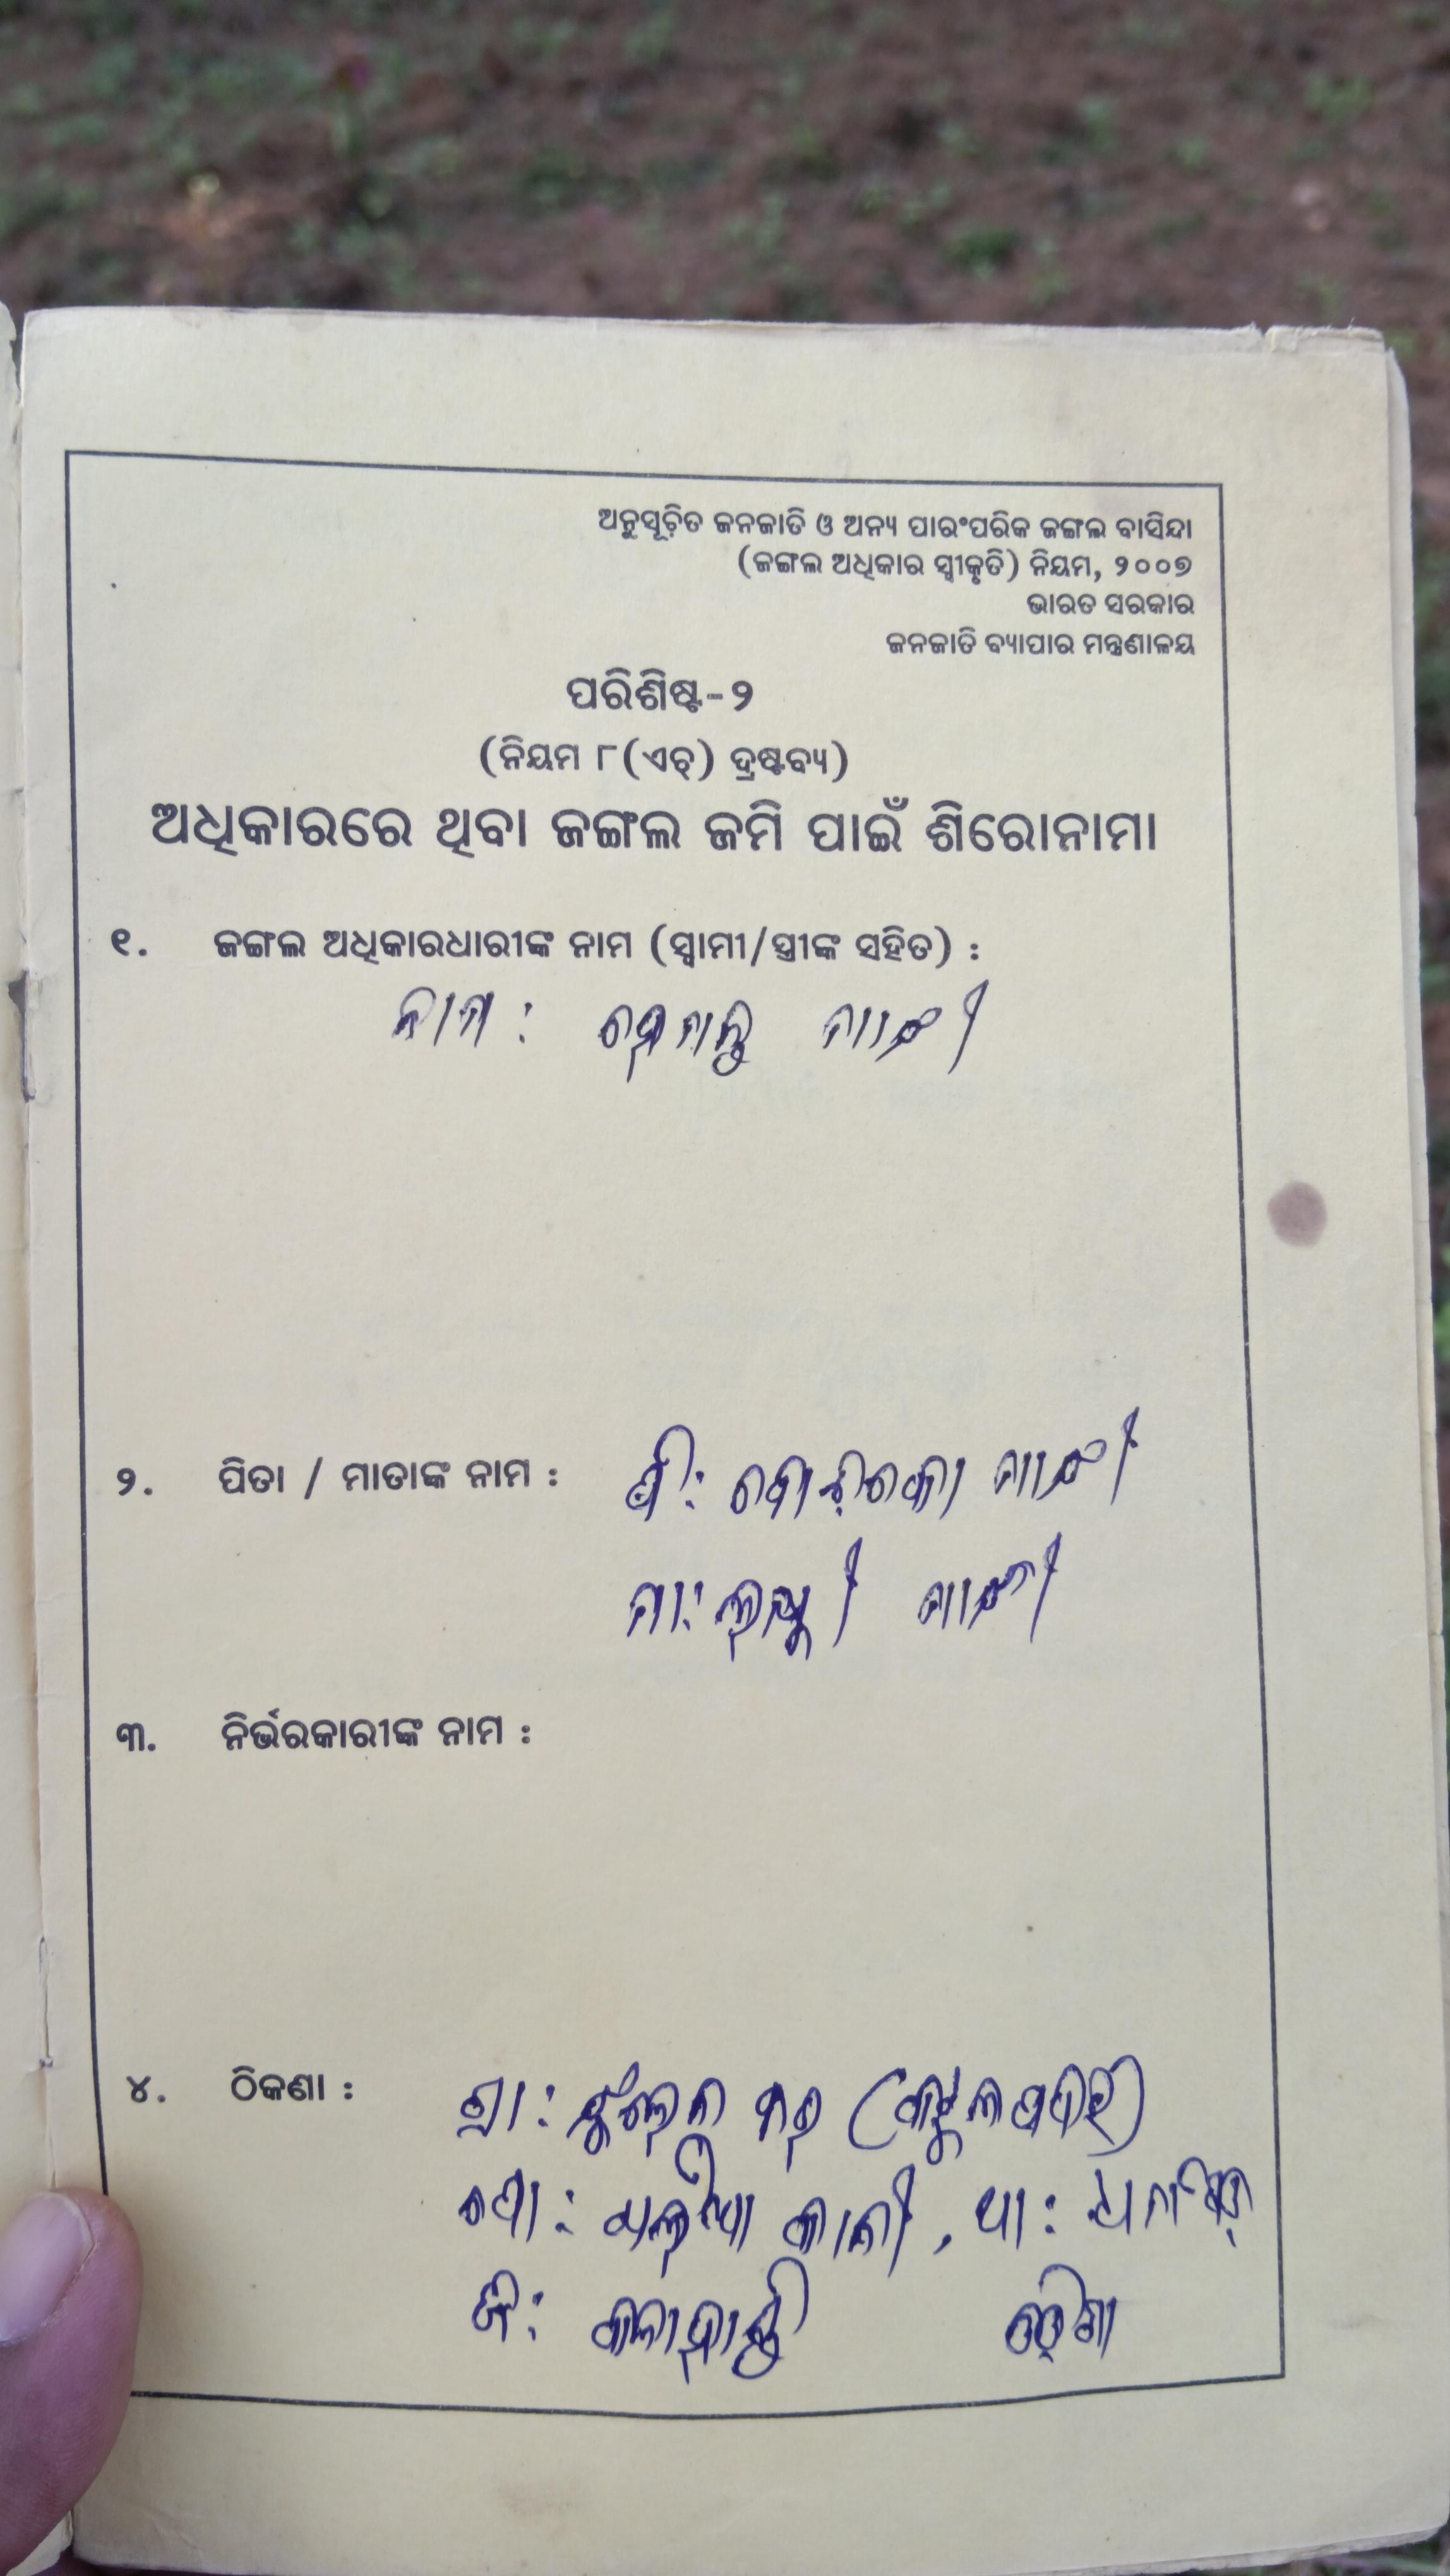 ଅନୁସୂଚିତ ଜନଜାତି ଓ ଅନ୍ୟ ପାରଂପରିକ ଜଙ୍ଗଲ ବାସିନ୍ଦା
(ଜଙ୍ଗଲ ଅଧିକାର ସ୍ୱୀକୃତି) ନିୟମ, ୨୦୦୭
ଭାରତ ସରକାର
ଜନଜାତି ବ୍ୟାପାର ମନ୍ତ୍ରଣାଳୟ
ପରିଶିଷ୍ଟ-୨
(ନିୟମ ୮(ଏଚ୍) ଦ୍ରଷ୍ଟବ୍ୟ)
ଅଧିକାରରେ ଥିବା ଜଙ୍ଗଲ ଜମି ପାଇଁ ଶିରୋନାମା
୧. ଜଙ୍ଗଲ ଅଧିକାରଧାରୀଙ୍କ ନାମ (ସ୍ୱାମୀ/ସ୍ତ୍ରୀଙ୍କ ସହିତ) :
ନାମ : ହେମନ୍ତ ମାଝୀ
୨. ପିତା / ମାତାଙ୍କ ନାମ : ପି: ମାଝୀ
ମା: ମାଝୀ
୩. ନିର୍ଭରକାରୀଙ୍କ ନାମ :
୪. ଠିକଣା : ଗ୍ରା :
ପୋ : , ଥା :
ଜି: କଳାହାଣ୍ଡି ଓଡ଼ିଶା